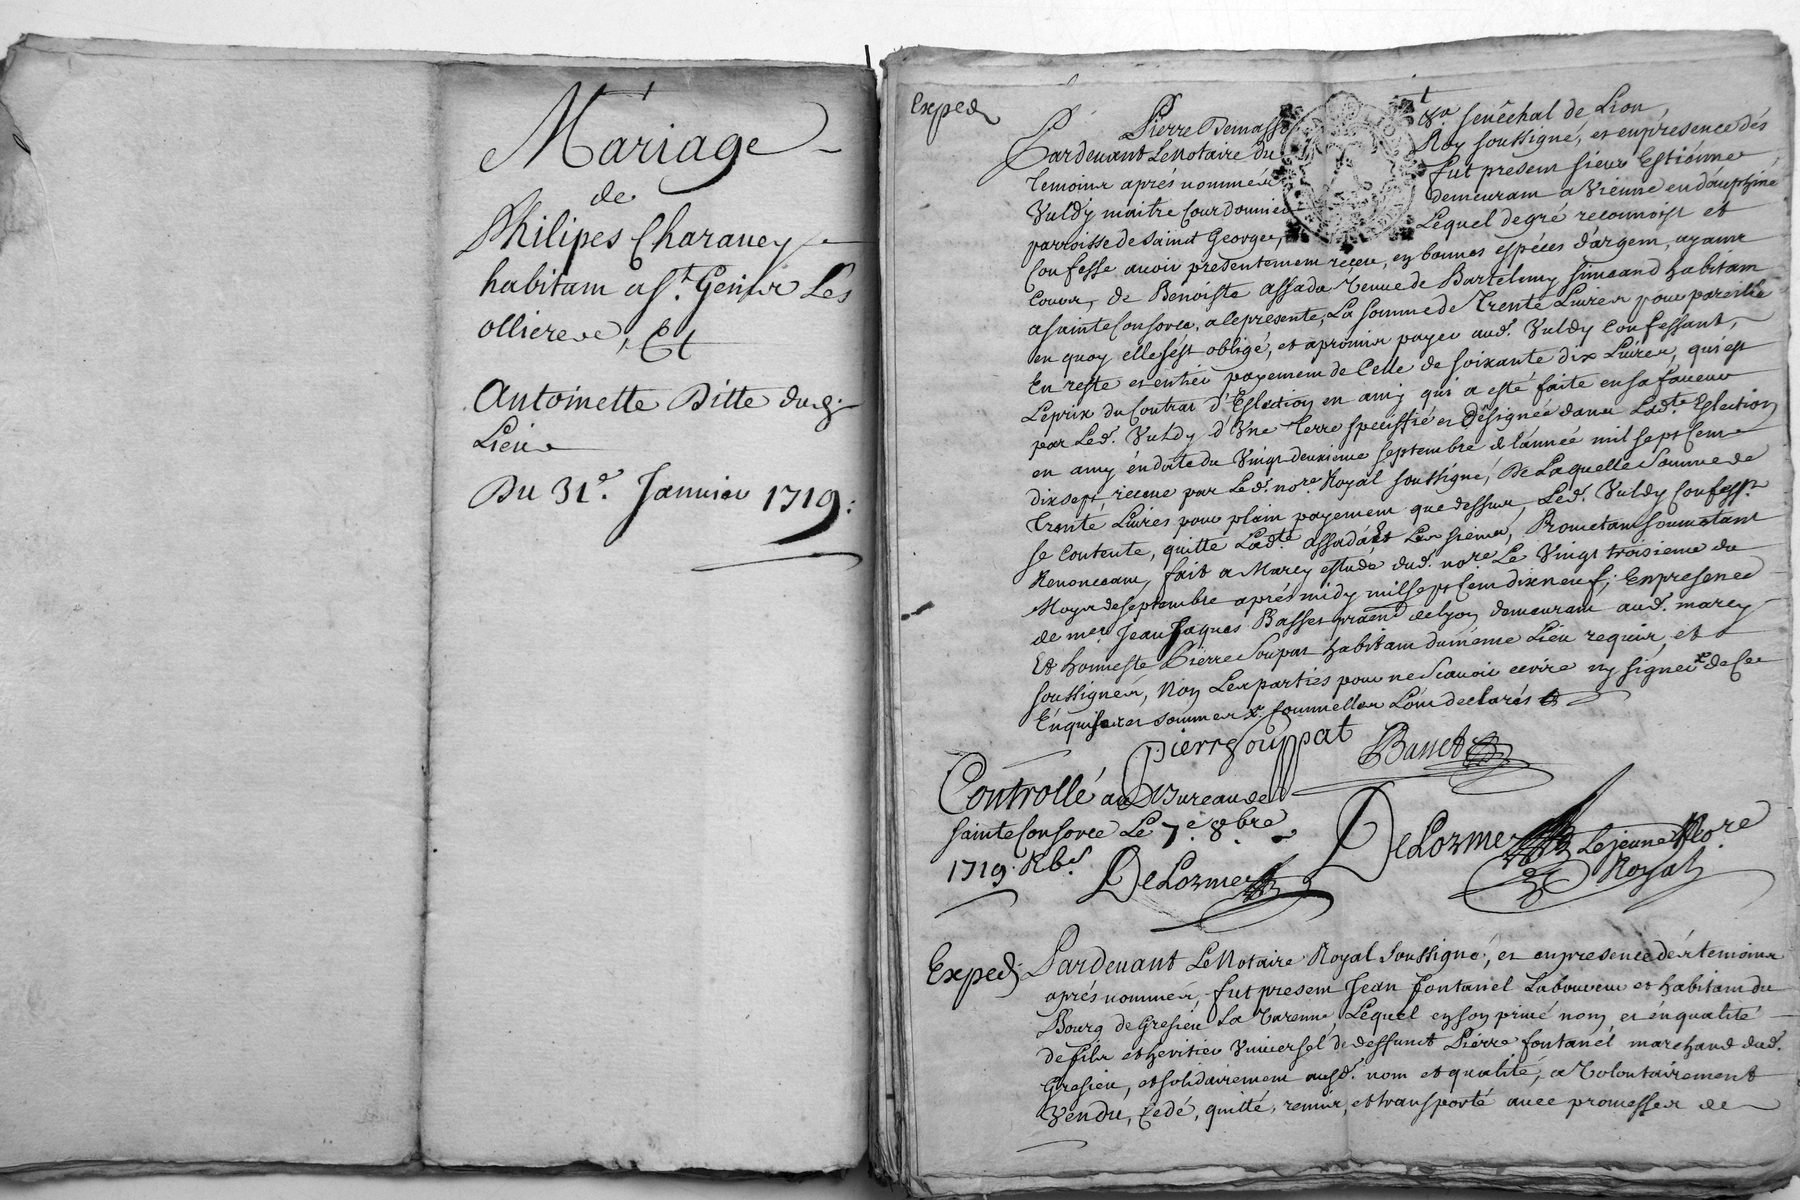 Mariage
de
Philipes Charauey
habitant a St. Genis Les
ollieres, Et
Antoinette Pitte dud.
Lieu
Du 31e. Janvier 1719.
Exped
Pierre Demasso
8al senêchal de Lion,
Pardevant Le Notaire du Roy soussigné, et en presence des
temoins aprés nommés fut present sieur Estienne
Vuldy maitre Cordonnier demeurant a Vienne en dauphiné
parroisse de Sainct George, Lequel de gré reconnoist et
Confesse avoir presentement reçeu, en bonnes espéces d'argent, ayant
Cours, de Benoiste assada Veuve de Bartelemy simeand habitant
a Sainte Consorce, a le presente, La somme de Trente Livres pour pareille
en quoy elle s'est obligé, et a promis payer aud. Vuldy Confessant,
En reste et entier payement de Celle de soixante dix Livres, qui est
Le prix du Contrat d'Eslection en amy qui a esté faite en sa faveur
par Led. Vuldy d'Une Terre speciffié et désignée dans Lad.te Eslection
en amy en date du Vingt deuxieme septembre de l'année mil sept Cent
dix sept reçeue par Led. nore. Royal soussigné, De Laquelle Somme de
Trente Livres pour plain payement que dessus, Led. Vuldy Confesst.
se Contente, quitte Lad.te assada Et Les siens, Prometant soumetant
Renoncant, fait a Marcy estude dud. nore Le Vingt troisieme du
Moys de septembre aprés midy mil sept Cent dix neuf; En presence
de me Jean Jaques Basset pratn. de Lyon demeurant aud. marcy
Et honneste Pierre Soupat habitant du méme Lieu requis, et
soussignés, Non Les parties pour ne Scavoir ecrire ny signer de Ce
Enquises et sommés formelles Loin declarés
Pierre Souppat Basset
Controllé au Bureau de
Sainte Consorce Le 7e. 8bre
1719. R
DeLorme
DeLorme Lejeune Nore
Royal
Exped. Pardevant Le Notaire Royal soussigné, et en presence des temoins
aprés nommés, fut present Jean fontanel Laboureur et habitant du
Bourg de Gresieu La Varenne, Lequel en son privé nom, et en qualité
de fils et heritier Universel de deffunct Pierre fontanel marchand dud.
Gresieu, et solidairement ausd. nom et qualité, a Volontairement
Vendu, Cedé, quitté, remis, et transporté avec promesses de